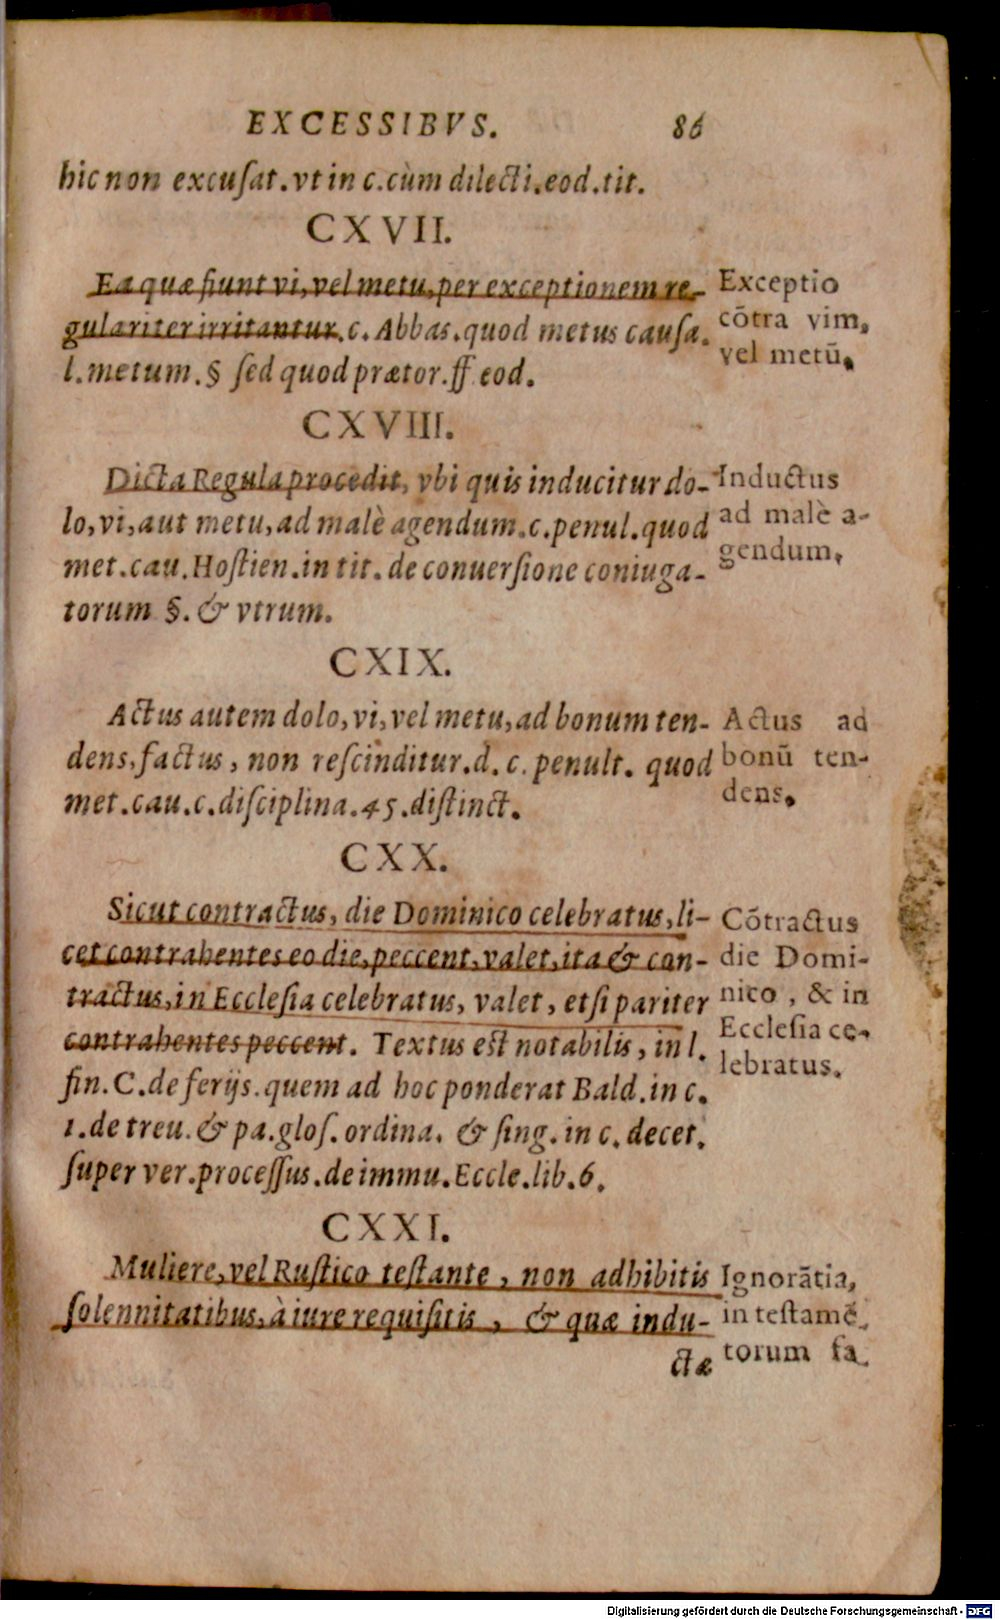 EXCESSIBVS. 86
hic non excuſat. vt in c. cùm dilecti. eod. tit.
CXVII.
Ea quæ fiunt vi, vel metu, per exceptionem re-
gulariter irritantur. c. Abbas. quod metus cauſa.
l. metum. § ſed quod prætor. ff eod.
Exceptio
cōtra vim,
vel metū.
CXVIII.
Dicta Regula procedit, vbi quis inducitur do-
lo, vi, aut metu, ad malè agendum. c. penul. quod
met. cau. Hoſtien. in tit. de conuerſione coniuga-
torum §. & vtrum.
Inductus
ad malè a-
gendum.
CXIX.
Actus autem dolo, vi, vel metu, ad bonum ten-
dens, factus, non reſcinditur. d. c. penult. quod
met. cau. c. diſciplina. 45. diſtinct.
Actus ad
bonū ten-
dens.
CXX.
Sicut contractus, die Dominico celebratus, li-
cet contrahentes eo die, peccent, valet, ita & con-
tractus, in Eccleſia celebratus, valet, etſi pariter
contrahentes peccent. Textus eſt notabilis, in l.
fin. C. de ferijs. quem ad hoc ponderat Bald. in c.
1. de treu. & pa. gloſ. ordina. & ſing. in c. decet.
ſuper ver. proceſſus. de immu. Eccle. lib. 6.
Cōtractus
die Domi-
nico, & in
Eccleſia ce-
lebratus.
CXXI.
Muliere, vel Ruſtico teſtante, non adhibitis
ſolennitatibus, à iure requiſitis, & quæ indu-
ctæ
Ignorātia,
in teſtamē
torum fa
Digitalisierung gefördert durch die Deutsche Forschungsgemeinschaft - DFG